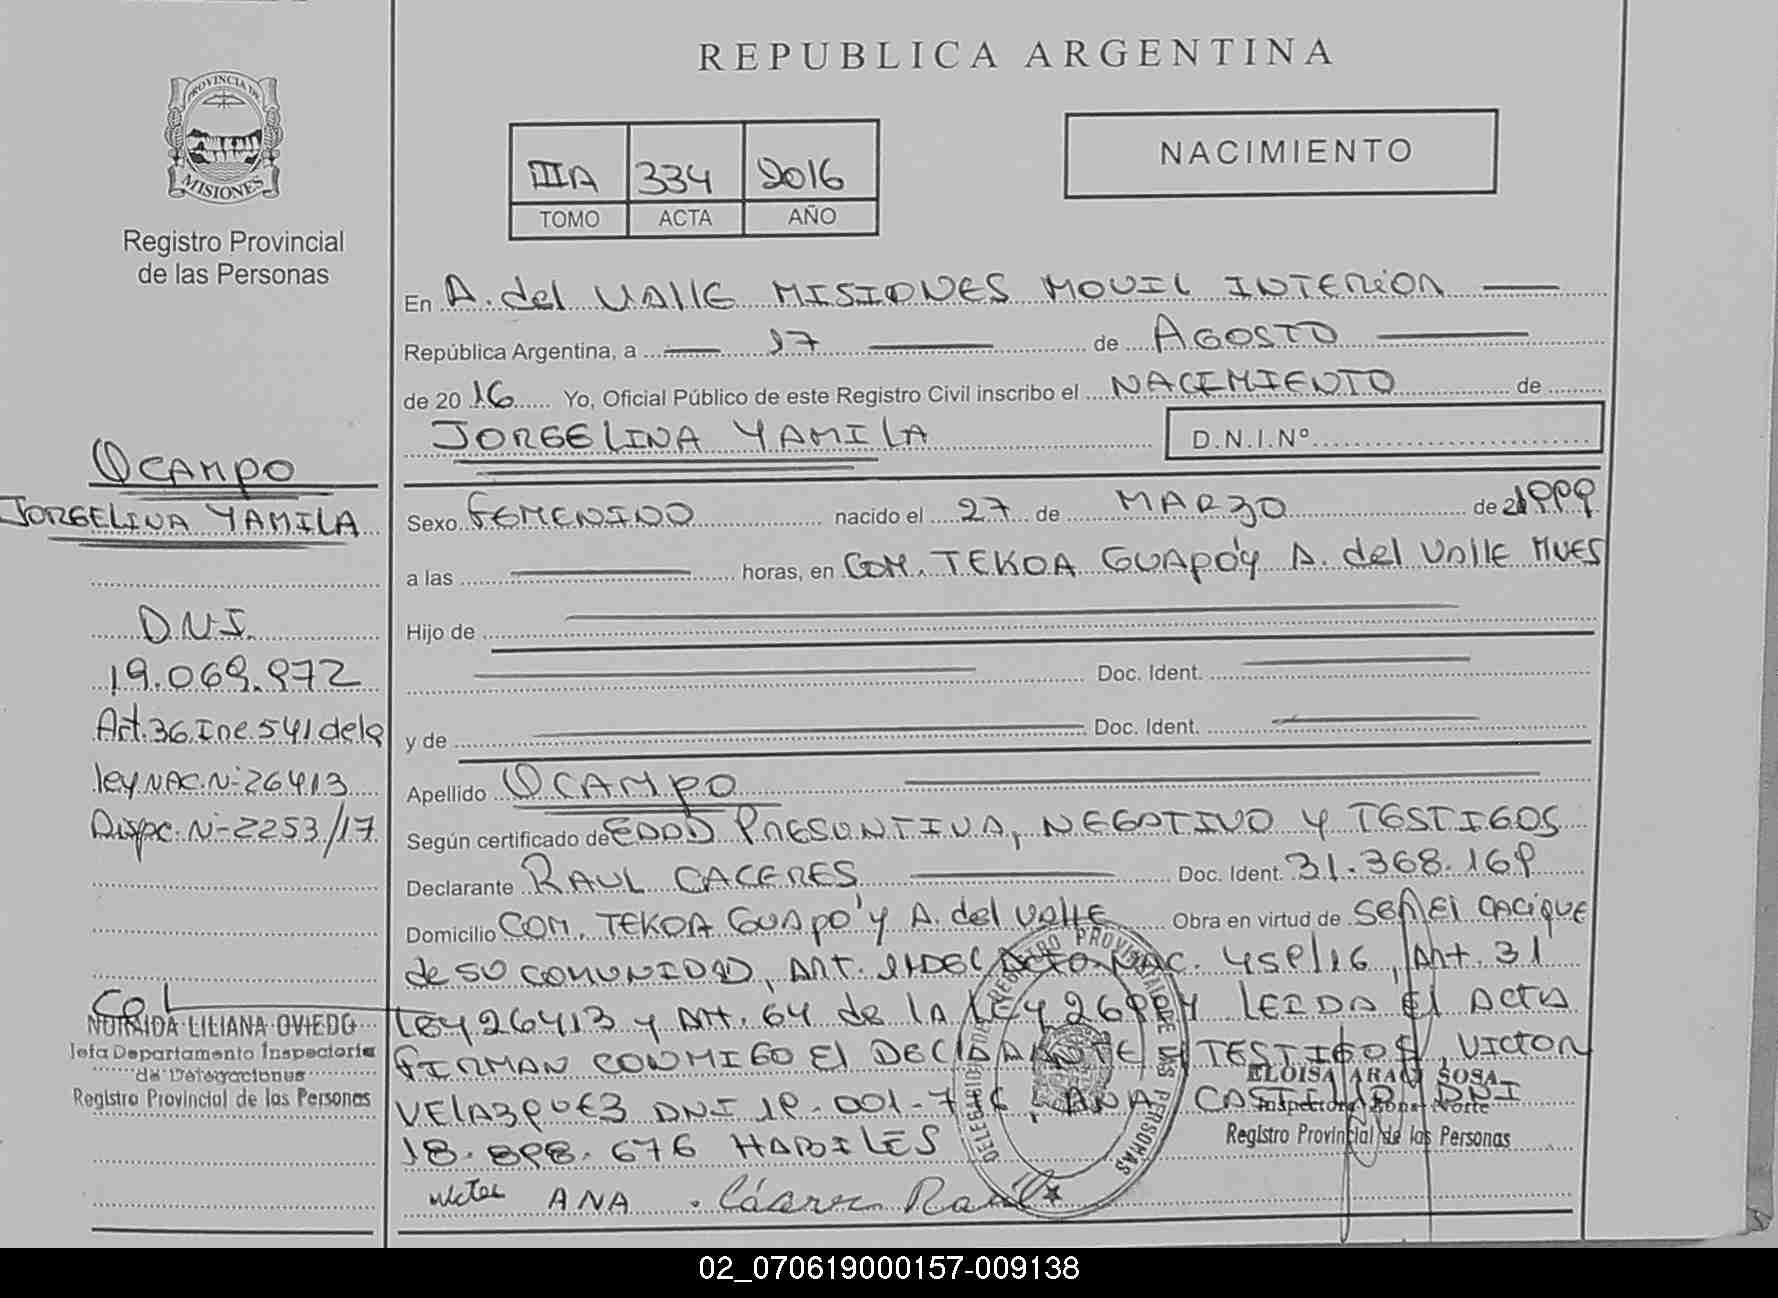 REPUBLICA ARGENTINA
PROVINCIA DE
MISIONES
Registro Provincial
de las Personas
IIIA 334 2016
TOMO ACTA AÑO
NACIMIENTO
En A. del VALLE MISIONES MOVIL INTERIOR
República Argentina, a 17 de AGOSTO
de 2016 Yo, Oficial Público de este Registro Civil inscribo el NACIMIENTO de
JORGELINA YAMILA D.N.I.Nº
Sexo FEMENINO nacido el 27 de MARZO de 1999
a las horas, en COM. TEKOA GUAPO'Y A. del VALLE MNES
Hijo de
Doc. Ident.
y de Doc. Ident.
Apellido OCAMPO
Según certificado de EDAD PRESUNTIVA, NEGATIVO Y TESTIGOS
Declarante RAUL CACERES Doc. Ident. 31.368.169
Domicilio COM. TEKOA GUAPO'Y A. del VALLE Obra en virtud de SER EL CACIQUE
de SU COMUNIDAD, ART. DEC NAC. 459/16, Art. 31
LEY 26413 y Art. 64 de la LEY 26994 LEIDA El ACTA
FIRMAN CONMIGO El DECLARANTE Y TESTIGOS, VICTOR
VELAZQUEZ DNI 19.001.7, ANA CASTILLO DNI
18.898.676 HABILES
Victor ANA Cáceres Raúl
OCAMPO
JORGELINA YAMILA
D.N.I.
19.069.972
Art. 36 Inc. 541 dela
ley NAC. Nº 26413
Dispc. Nº 2253/17
LILIANA OVIEDO
Jefa Departamento Inspectoria
de Delegaciones
Registro Provincial de las Personas
REGISTRO PROVINCIAL DE LAS PERSONAS
ELOISA ARACI SOSA
Inspectora Zona Norte
Registro Provincial de las Personas
02_070619000157-009138